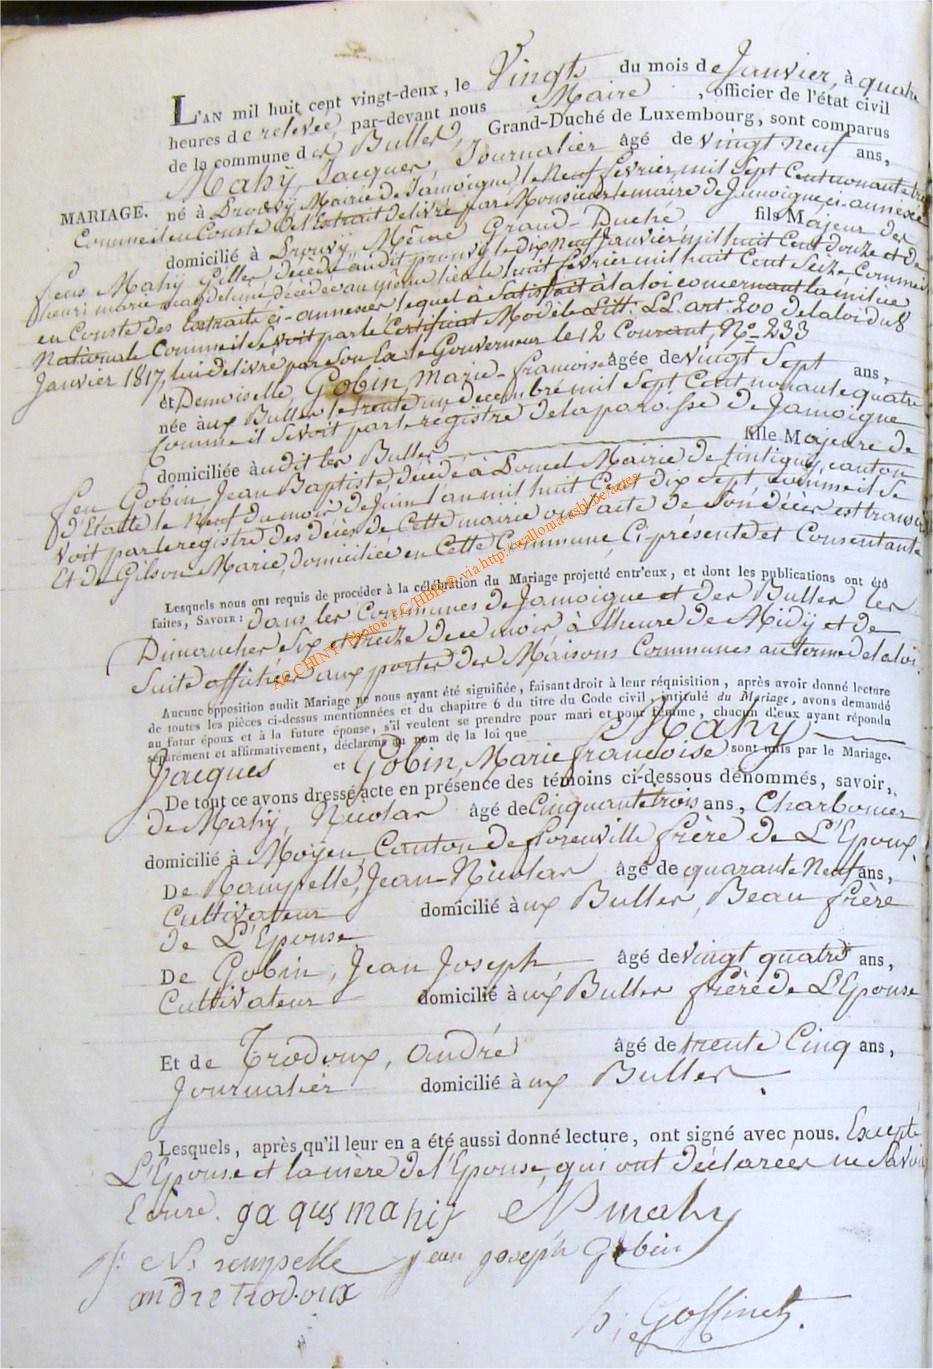 L'AN mil huit cent vingt-deux, le Vingt du mois de Janvier, à quatre
heures de relévée, par-devant nous Maire, officier de l'état civil
de la commune des Bulles, Grand-Duché de Luxembourg, sont comparus
Mahÿ, Jacques Journalier âgé de vingt neuf ans,
MARIAGE. né à Prouvÿ, Mairie de Jamoigne, le Neuf février mil Sept Cent nonante trois
Comme il en Conste de l'Extrait delivré par Monsieur le maire de Jamoigne ci-annexée
domicilié à Prouvÿ, Même Grand-Duché fils Majeur des
feus Mahÿ Gilles décédé audit prouvÿ le dix Neuf Janvier mil huit Cent douze et de
henri marie magdelaine décédée au même lieu le huit fevrier mil huit Cent Seize Comme il
en Conste des Extraits ci-annexés, lequel à Satisfait à la loi concernant la milice
Nationale Comme il se voit par le Certificat Modèle Litt. LL. art. 200 de la loi du 8
Janvier 1817, lui delivré par Son Ex. le Gouverneur le 12 Courant, No. 233
et Demoiselle, Gobin, Marie-françoise âgée de vingt Sept ans,
née aux Bulles le trente un decembre mil Sept Cent nonante quatre
Comme il se voit par le registre de la paroisse de Jamoigne
domiciliée audit les Bulles fille Majeure de
feu Gobin Jean Baptiste décédé à Mairie de tintigny, canton
d'Etalle le Neuf du mois de Juin l'an mil huit Cent dix Sept, comme il se
voit par le registre des décès de Cette mairie ou l'acte de Son décès est transcrit
Et de Gilson Marie, domiciliée en Cette Commune, Ci-présente et Consentante
Lesquels nous ont requis de procéder à la célébration du Mariage projetté entr'eux, et dont les publications ont été
faites, SAVOIR: dans les Communes de Jamoigne et des Bulles les
Dimanches Six et treize de ce mois à l'heure de Midÿ et de
Suite affichées aux portes des Maisons Communes au terme de la loi
Aucune opposition audit Mariage ne nous ayant été signifiée, faisant droit à leur réquisition, après avoir donné lecture
de toutes les pièces ci-dessus mentionnées et du chapitre 6 du titre du Code civil, intitulé du Mariage, avons demandé
au futur époux et à la future épouse, s'il veulent se prendre pour mari et pour femme, chacun d'eux ayant répondu
séparément et affirmativement, déclarons au nom de la loi que Mahy
Jacques et Gobin, Marie françoise sont unis par le Mariage.
De tout ce avons dressé acte en présence des témoins ci-dessous dénommés, savoir,
de Mahÿ, Nicolas âgé de Cinquante trois ans, Charbonier
domicilié à Moyen, Canton de florenville frère de L'Epoux,
De Rampselle, Jean-Nicolas âgé de quarante Neuf ans,
Cultivateur domicilié aux Bulles, Beau frère
de L'Epouse
De Gobin, Jean Joseph âgé de vingt quatre ans,
Cultivateur domicilié aux Bulles frère de L'Epouse
Et de Trodoux, André âgé de trente Cinq ans,
Journalier domicilié aux Bulles.
Lesquels, après qu'il leur en a été aussi donné lecture, ont signé avec nous. Excepté
L'Epouse et la mère de l'Epouse, qui ont déclarées ne Savoir
Ecrire. ga qus mahij N mahy
J: Ns rempselle jean joseph Gobin
andre trodoux
h; Goffinet.
AGCHINY Photos: J.C/HBH © via http://wallonia-asbl.be/actes